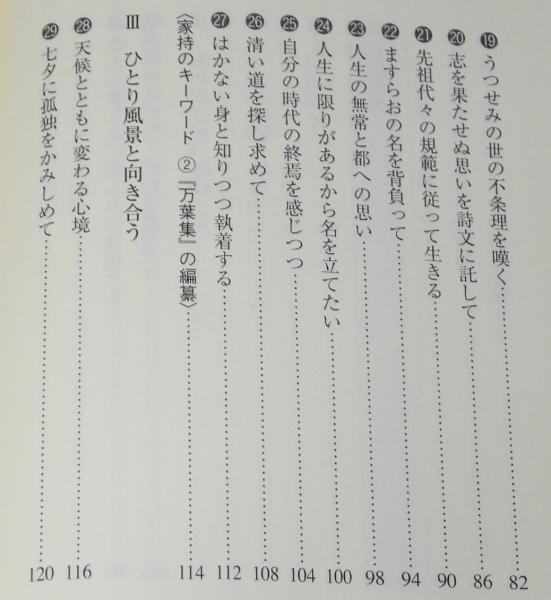 ⓳うつせみの世の不条理を嘆く……………………82
⓴志を果たせぬ思いを詩文に託して……………………86
㉑先祖代々の規範に従って生きる……………………90
㉒ますらおの名を背負って……………………94
㉓人生の無常と都への思い……………………98
㉔人生に限りがあるから名を立てたい……………………100
㉕自分の時代の終焉を感じつつ……………………104
㉖清い道を探し求めて……………………108
㉗はかない身と知りつつ執着する……………………112
〈家持のキーワード ②『万葉集』の編纂〉……………………114
Ⅲ ひとり風景と向き合う
㉘天候とともに変わる心境……………………116
㉙七夕に孤独をかみしめて……………………120